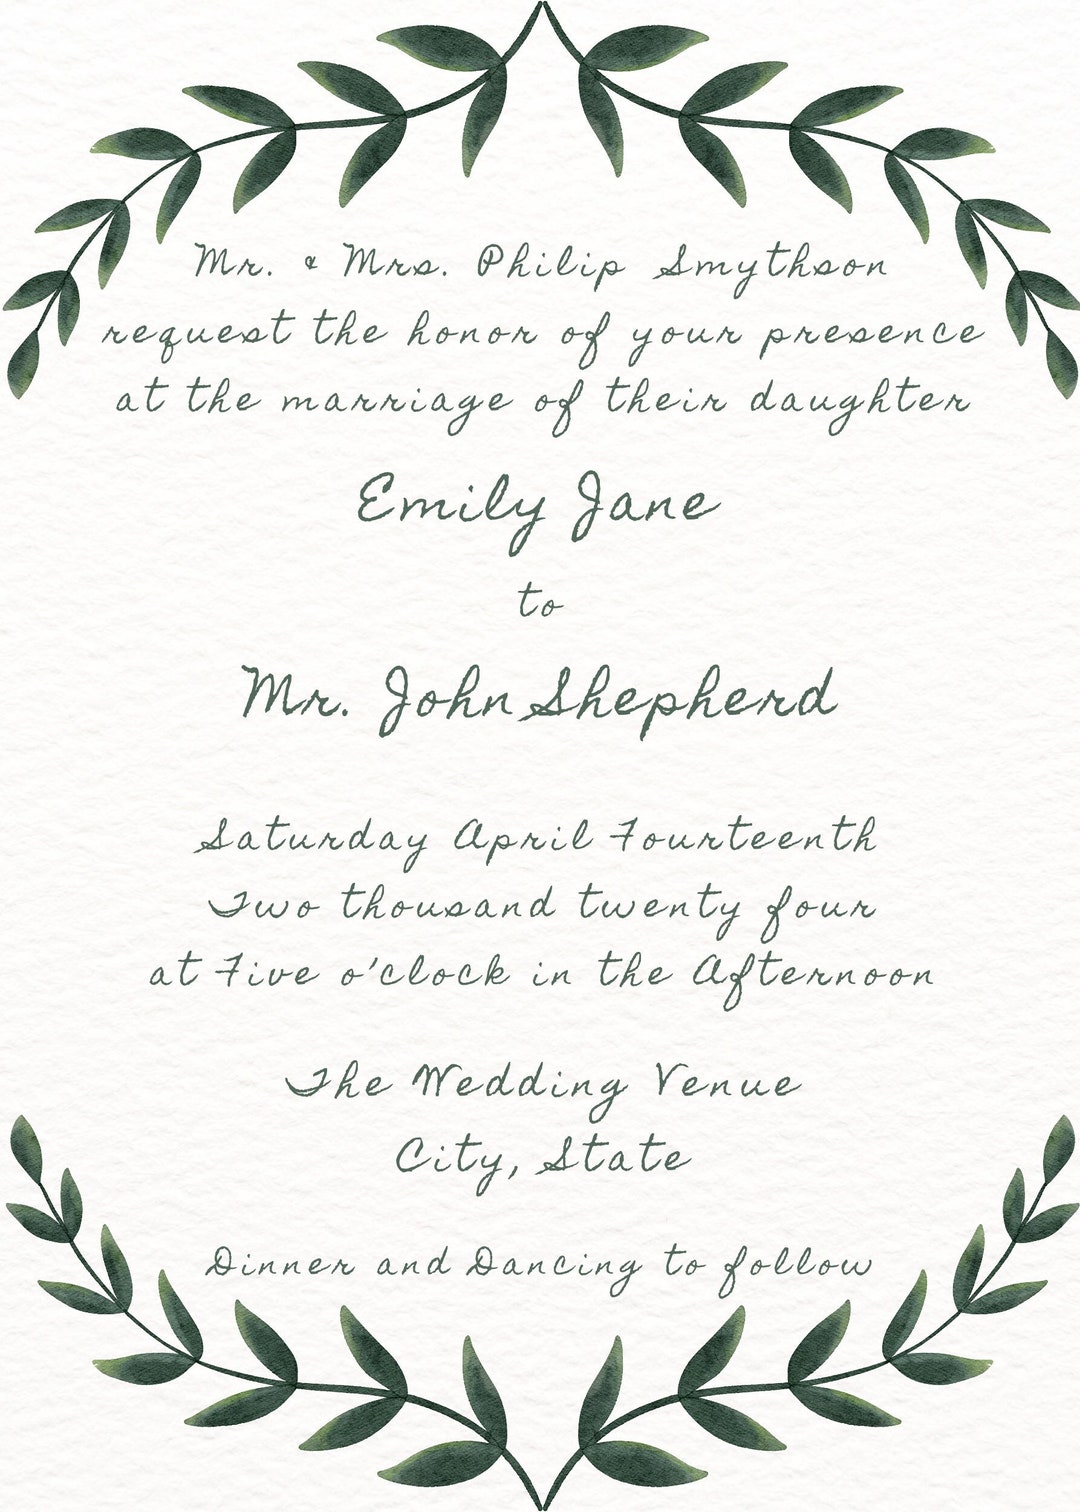 Mr. & Mrs. Philip Smythson
request the honor of your presence
at the marriage of their daughter
Emily Jane
to
Mr. John Shepherd
Saturday April Fourteenth
Two thousand twenty four
at Five o'clock in the Afternoon
The Wedding Venue
City, State
Dinner and Dancing to follow